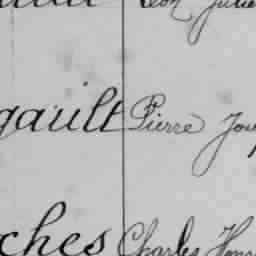 Léon Julie
gault Pierre Jou
ches Charles Henr